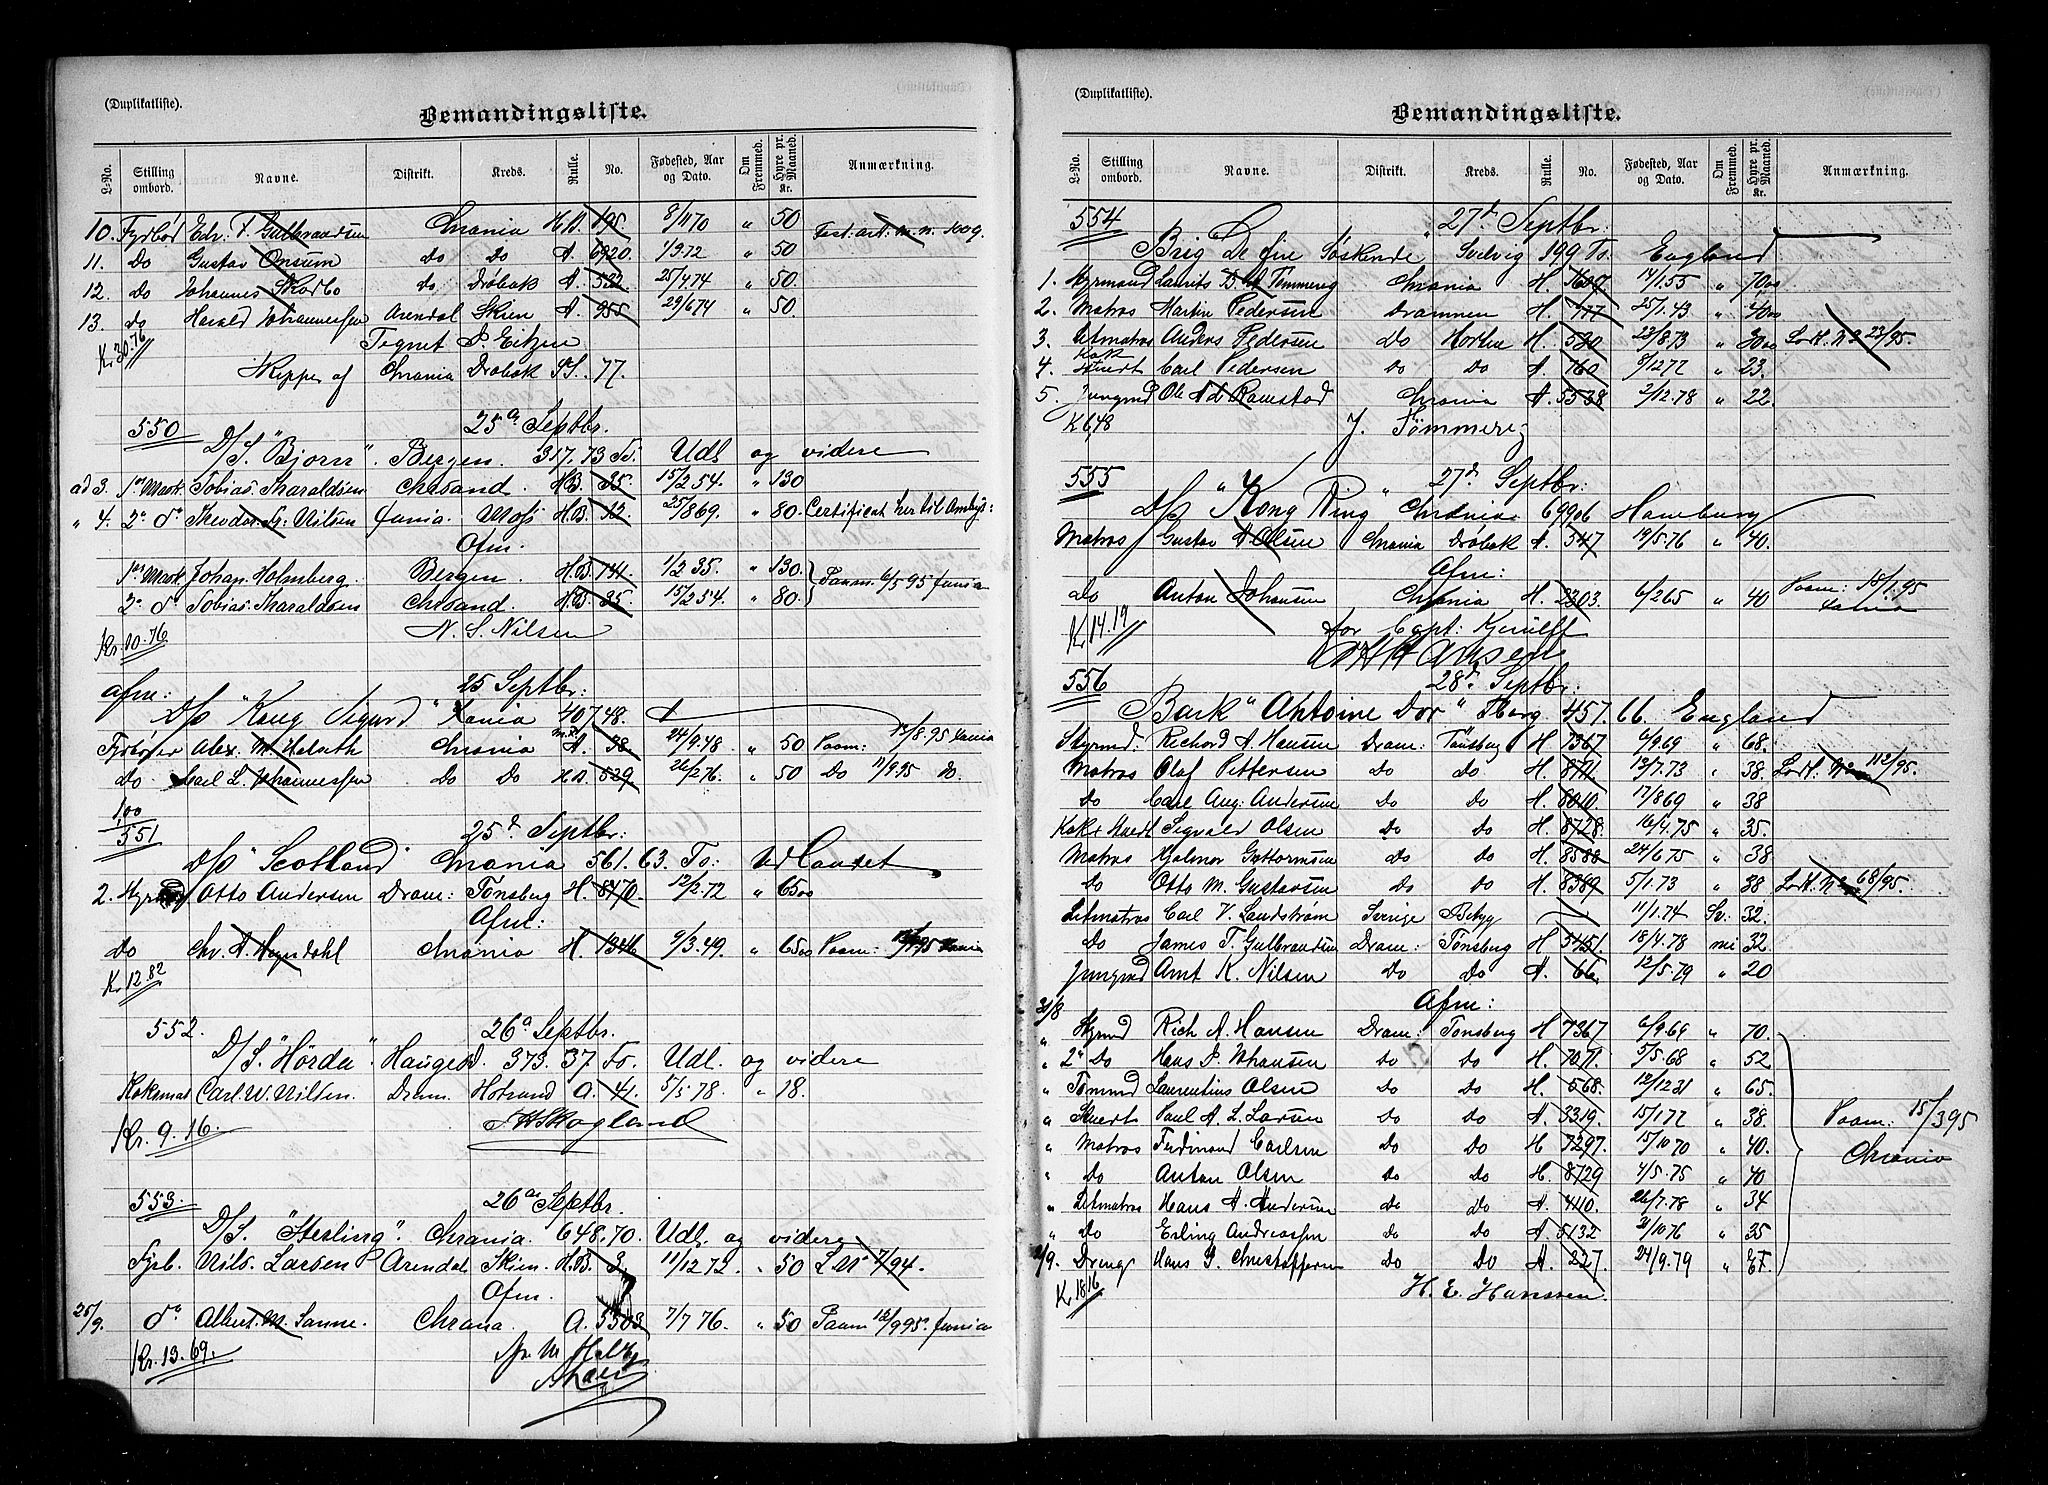 (Duplikatliste).
Bemandingsliste.
L-No. Stilling ombord. Navne. Distrikt. Kreds. Rulle. No. Fødested, Aar og Dato. Om Fremmed. Hyre pr. Maaned. Kr. Anmærkning.
10. Fyrbød Edv. T. Gulbrandsen Chrania H.B. 195. 8/11 70 " 50
11. Do Gustav Onsum do Do A. 6920. 1/9.72 " 50
12. do Johannes Skarbo do Drøbak A. 522. 25/4.74 " 50.
13. do Harald Johannessen Arendal Skien A. 955 29/6 74 " 50.
Kr. 30.76 Tegnet P. Eitzen
Skipper af Chrania Drøbak S.S. 77.
550 25de Septbr.
D/S. "Bjørn". Bergen. 317.73 To. Udl. og videre
ad 3. 1ste Mask. Tobias Tharaldsen Chrsand. H.B. 35. 15/2 54. " 130
" 4. 2n do Theodor Nilsen Xania. Moss H.B. 12. 25/8 69. " 80. Certificat
Afm.
1ste Mask Johan Holmberg. Bergen. H.B. 131. 1/2 35. " 130. Paam. 6/5 95 Xania
2n do Tobias Tharaldsen Chrsand. H.B. 35. 15/2 54. " 80.
Kr. 10.76 N. S. Nilsen
Afm: 25 Septbr:
D/S "Kong Sigurd" Xania 407 48.
Fyrbøder Alex. M. Chrania A. 38. 24/9.48 " 50 Paam: 13/8.95 Xania
do Carl L. Johannessen Do Do H.B. 829 26/2 76. " 50 Do 11/9.95 do.
1,00
551 25d Septbr:
D/S "Scotland" Chrania 561.63. To: Udlandet
2. Styrmd Otto Andersen Dram: Tønsberg H. 8470. 12/2.72 " 65 00
Afm:
Do Chr. A. Hagendahl Chrania H. 1346 9/3.49. " 65 00 Paam: Xania
Kr 12.82
552. 26de Septbr.
D/S. "Hørda". Haugesd. 373.37 To. Udl. og videre
Koksmat Carl. W. Nilsen. Dram. Hotrand A. 41. 5/5 78. " 18.
Kr. 9.16. Skogland
553. 26de Septbr.
D/S. "Sterling". Chrania. 648.70. Udl. og videre
Fyrb. Nils. Larsen Arendal Skien. H.B. 3. 11/12 72. " 50
Afm.
25/9. do Albert. M. Sanne. Chrania. A. 5503 7/7 76. " 50 Paam 16/9 95. Xania
Kr. 13.69.
(Duplikatliste).
Bemandingsliste.
L-No. Stilling ombord. Navne. Distrikt. Kreds. Rulle. No. Fødested, Aar og Dato. Om Fremmed. Hyre pr. Maaned. Kr. Anmærkning.
554 27d Septbr:
Brig De fire Søskende Svelvig 199 To. England
1. Styrmand Laurits B. A. Tømmereg Chrania H. 1607 14/1.55 " 70 00
2. Matros Martin Pedersen Drammen H. 777 25/1.43 " 40 00
3. Letmatros Anders Pedersen do Horten H. 520 23/8.73 " 30 00
4. Kok Stuert Carl Pedersen do do A. 760 9/12 77 " 23.
5. Jungmd Ole A. Ramstad Chrania A. 5538 2/12.78 " 22.
K 6,48 J. Tømmereg
555 27d Septbr:
D/S "Kong Ring" Chrania 699 06 Hamburg
Matros Gustav A Olsen Chrania Drøbak A. 547 14/5.76 " 40.
Afm:
do Anton Johansen Chrania H. 2303. 6/2 65 " 40 Paam: 15/1.95 Xania
Kr 14.19 for Capt: Kjerulff
556 28d Septbr:
Bark "Antoine Dor" Tbørg 457.66. England
Styrmd. Richard A. Hansen Dram: Tønsberg H 7367 6/9.69 " 68.
Matros Olaf Pettersen Do do H. 8711. 13/7.73 " 38.
do Carl Aug: Andersen do Do H. 8010. 17/8 69 " 38
Kok & Stuert Sigvald Olsen do do H. 8728. 16/4.75 " 35.
Matros Hjalmar Guttormsen do do H. 8588 24/6 75 " 38
do Otto M. Gustavsen do do H. 8389 5/1.73 " 38
Letmatros Carl V. Landstrøm Sverige 11/1.74 Sv. 32.
Do James T. Gulbrandsen Dram: Tønsberg H 5451 18/4.78 32
Jungmd Arnt K. Nilsen do do A. 66. 12/5.79 " 20
Afm:
21/8
" Styrmd Rich A. Hansen Dram: Tønsberg H 7367 6/9.69 " 70.
" 2n Do Hans P. Johansen do do H. 7071. 5/5.68 " 52
" Tømmd Laurentius Olsen do do H. 568. 12/12 31 " 65.
" Stuert Paul A. L. Larsen do do A 3319. 15/1 77 " 38. Paam: 15/3 95
" Matros Ferdinand Carlsen do do H 7297. 15/10 70 " 40. Chrania
" do Anton Olsen do do H. 8729 4/5.75 " 40
" Letmatros Hans A. Andersen do do A. 4110. 26/7.78 " 34
" do Erling Andreassen do do A 5132 21/10 76 " 35
Dreng Hans J. Christoffersen do do A. 227. 24/9.79 "
K 18 16 H. E. Hanssen.